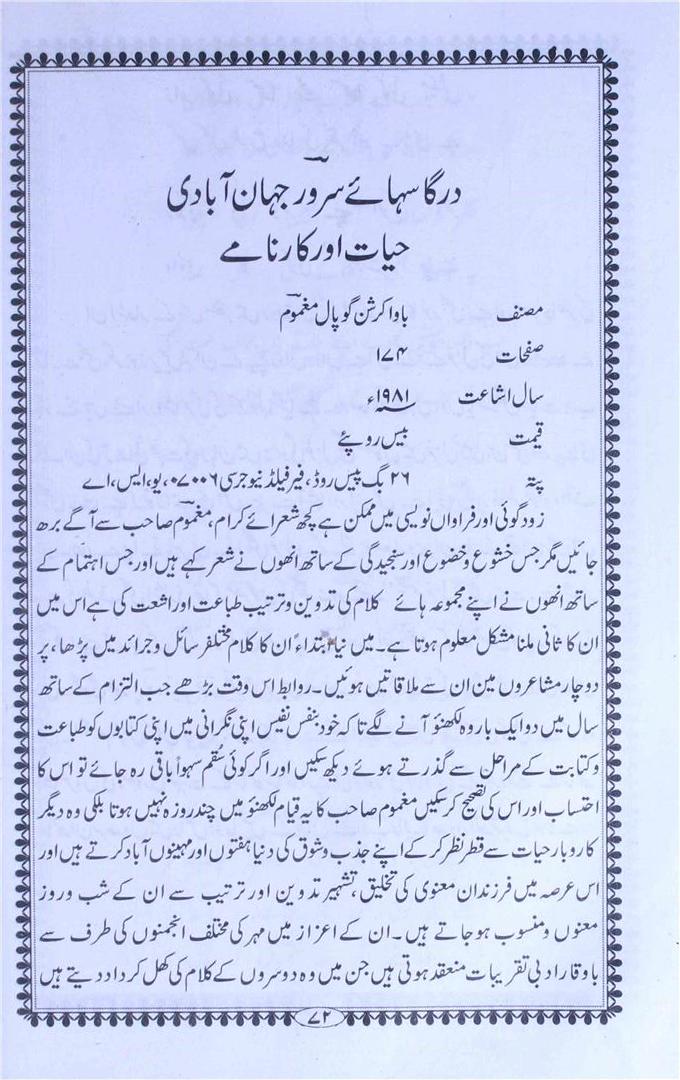 درگا سہائے سرور جہان آبادی
حیات اور کارنامے
مصنف باوا کرشن گوپال مغموم
صفحات ۱۷۴
سال اشاعت ۱۹۸۱ء
قیمت بیس روپئے
پتہ ۲۶ بگ پیس روڈ، فیر فیلڈ نیوجرسی ۰۷۰۰۶، یو، ایس، اے
زود گوئی اور فراواں نویسی میں ممکن ہے کچھ شعرائے کرام، مغموم صاحب سے آگے بڑھ
جائیں مگر جس خشوع و خضوع اور سنجیدگی کے ساتھ انھوں نے شعر کہے ہیں اور جس اہتمام کے
ساتھ انھوں نے اپنے مجموعہ ہائے کلام کی تدوین و ترتیب طباعت اور اشعت کی ہے اس میں
ان کا ثانی ملنا مشکل معلوم ہوتا ہے۔ میں نیا بتداءً ان کا کلام مختلفر سائل و جرائد میں پڑھا، پر
دو چار مشاعروں مین ان سے ملاقاتیں ہوئیں۔ روابط اس وقت بڑھے جب التزام کے ساتھ
سال میں دو ایک بار وہ لکھنؤ آنے لگے تاکہ خود بنفس نفیس اپنی نگرانی میں اپنی کتابوں کو طباعت
و کتابت کے مراحل سے گذرتے ہوئے دیکھ سکیں اور اگر کوئی سُقم سہواً باقی رہ جائے تو اس کا
احتساب اور اس کی تصحیح کر سکیں مغموم صاحب کا یہ قیام لکھنؤ میں چند روزہ نہیں ہوتا بلکی وہ دیگر
کاروبار حیات سے قطر نظر کر کے اپنے جذب و شوق کی دنیا ہفتوں اور مہینوں آباد کرتے ہیں اور
اس عرصہ میں فرزندان معنوی کی تخلیق، تشہیر تدوین اور ترتیب سے ان کے شب و روز
معنوں و منسوب ہو جاتے ہیں۔ ان کے اعزاز میں مہر کی مختلف انجمنوں کی طرف سے
باوقار ادبی تقریبات منعقد ہوتی ہیں جن میں وہ دوسروں کے کلام کی کھل کر داد دیتے ہیں
۷۲